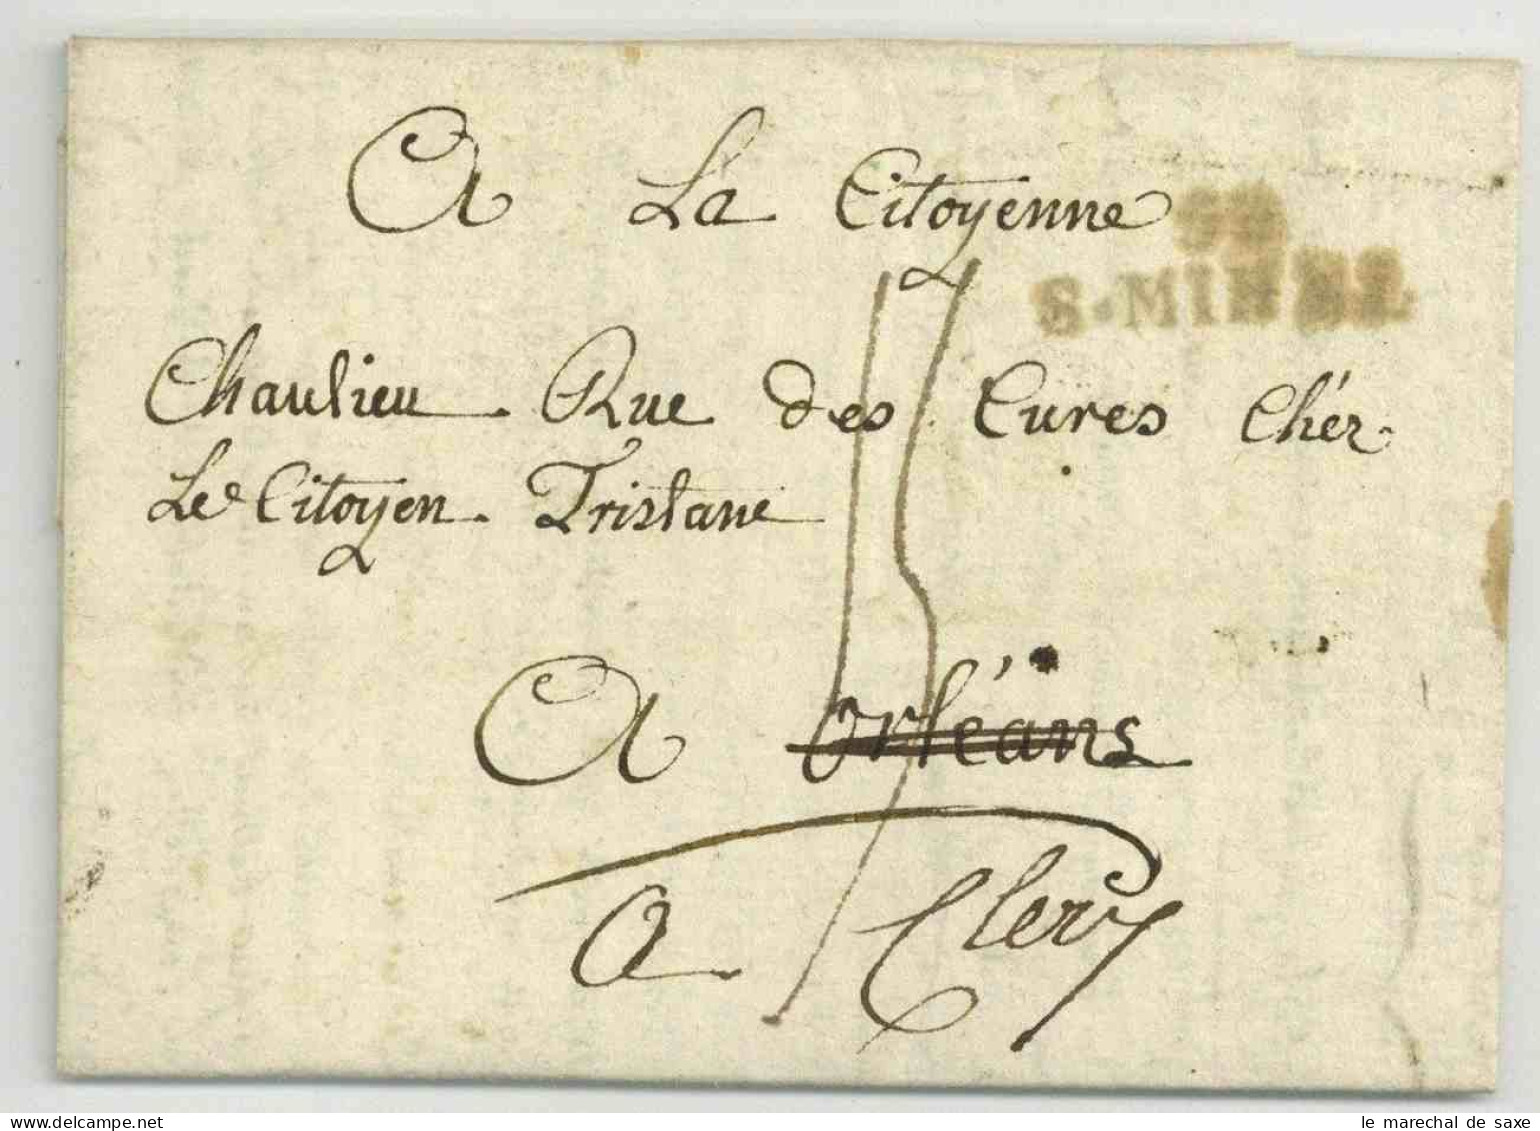 A La Citoyenne
S. MIHEL
Chaulieu Rue des Cures Chéz
Le Citoyen Tristane
15
A Orléans
a Clery
le marechal de saxe